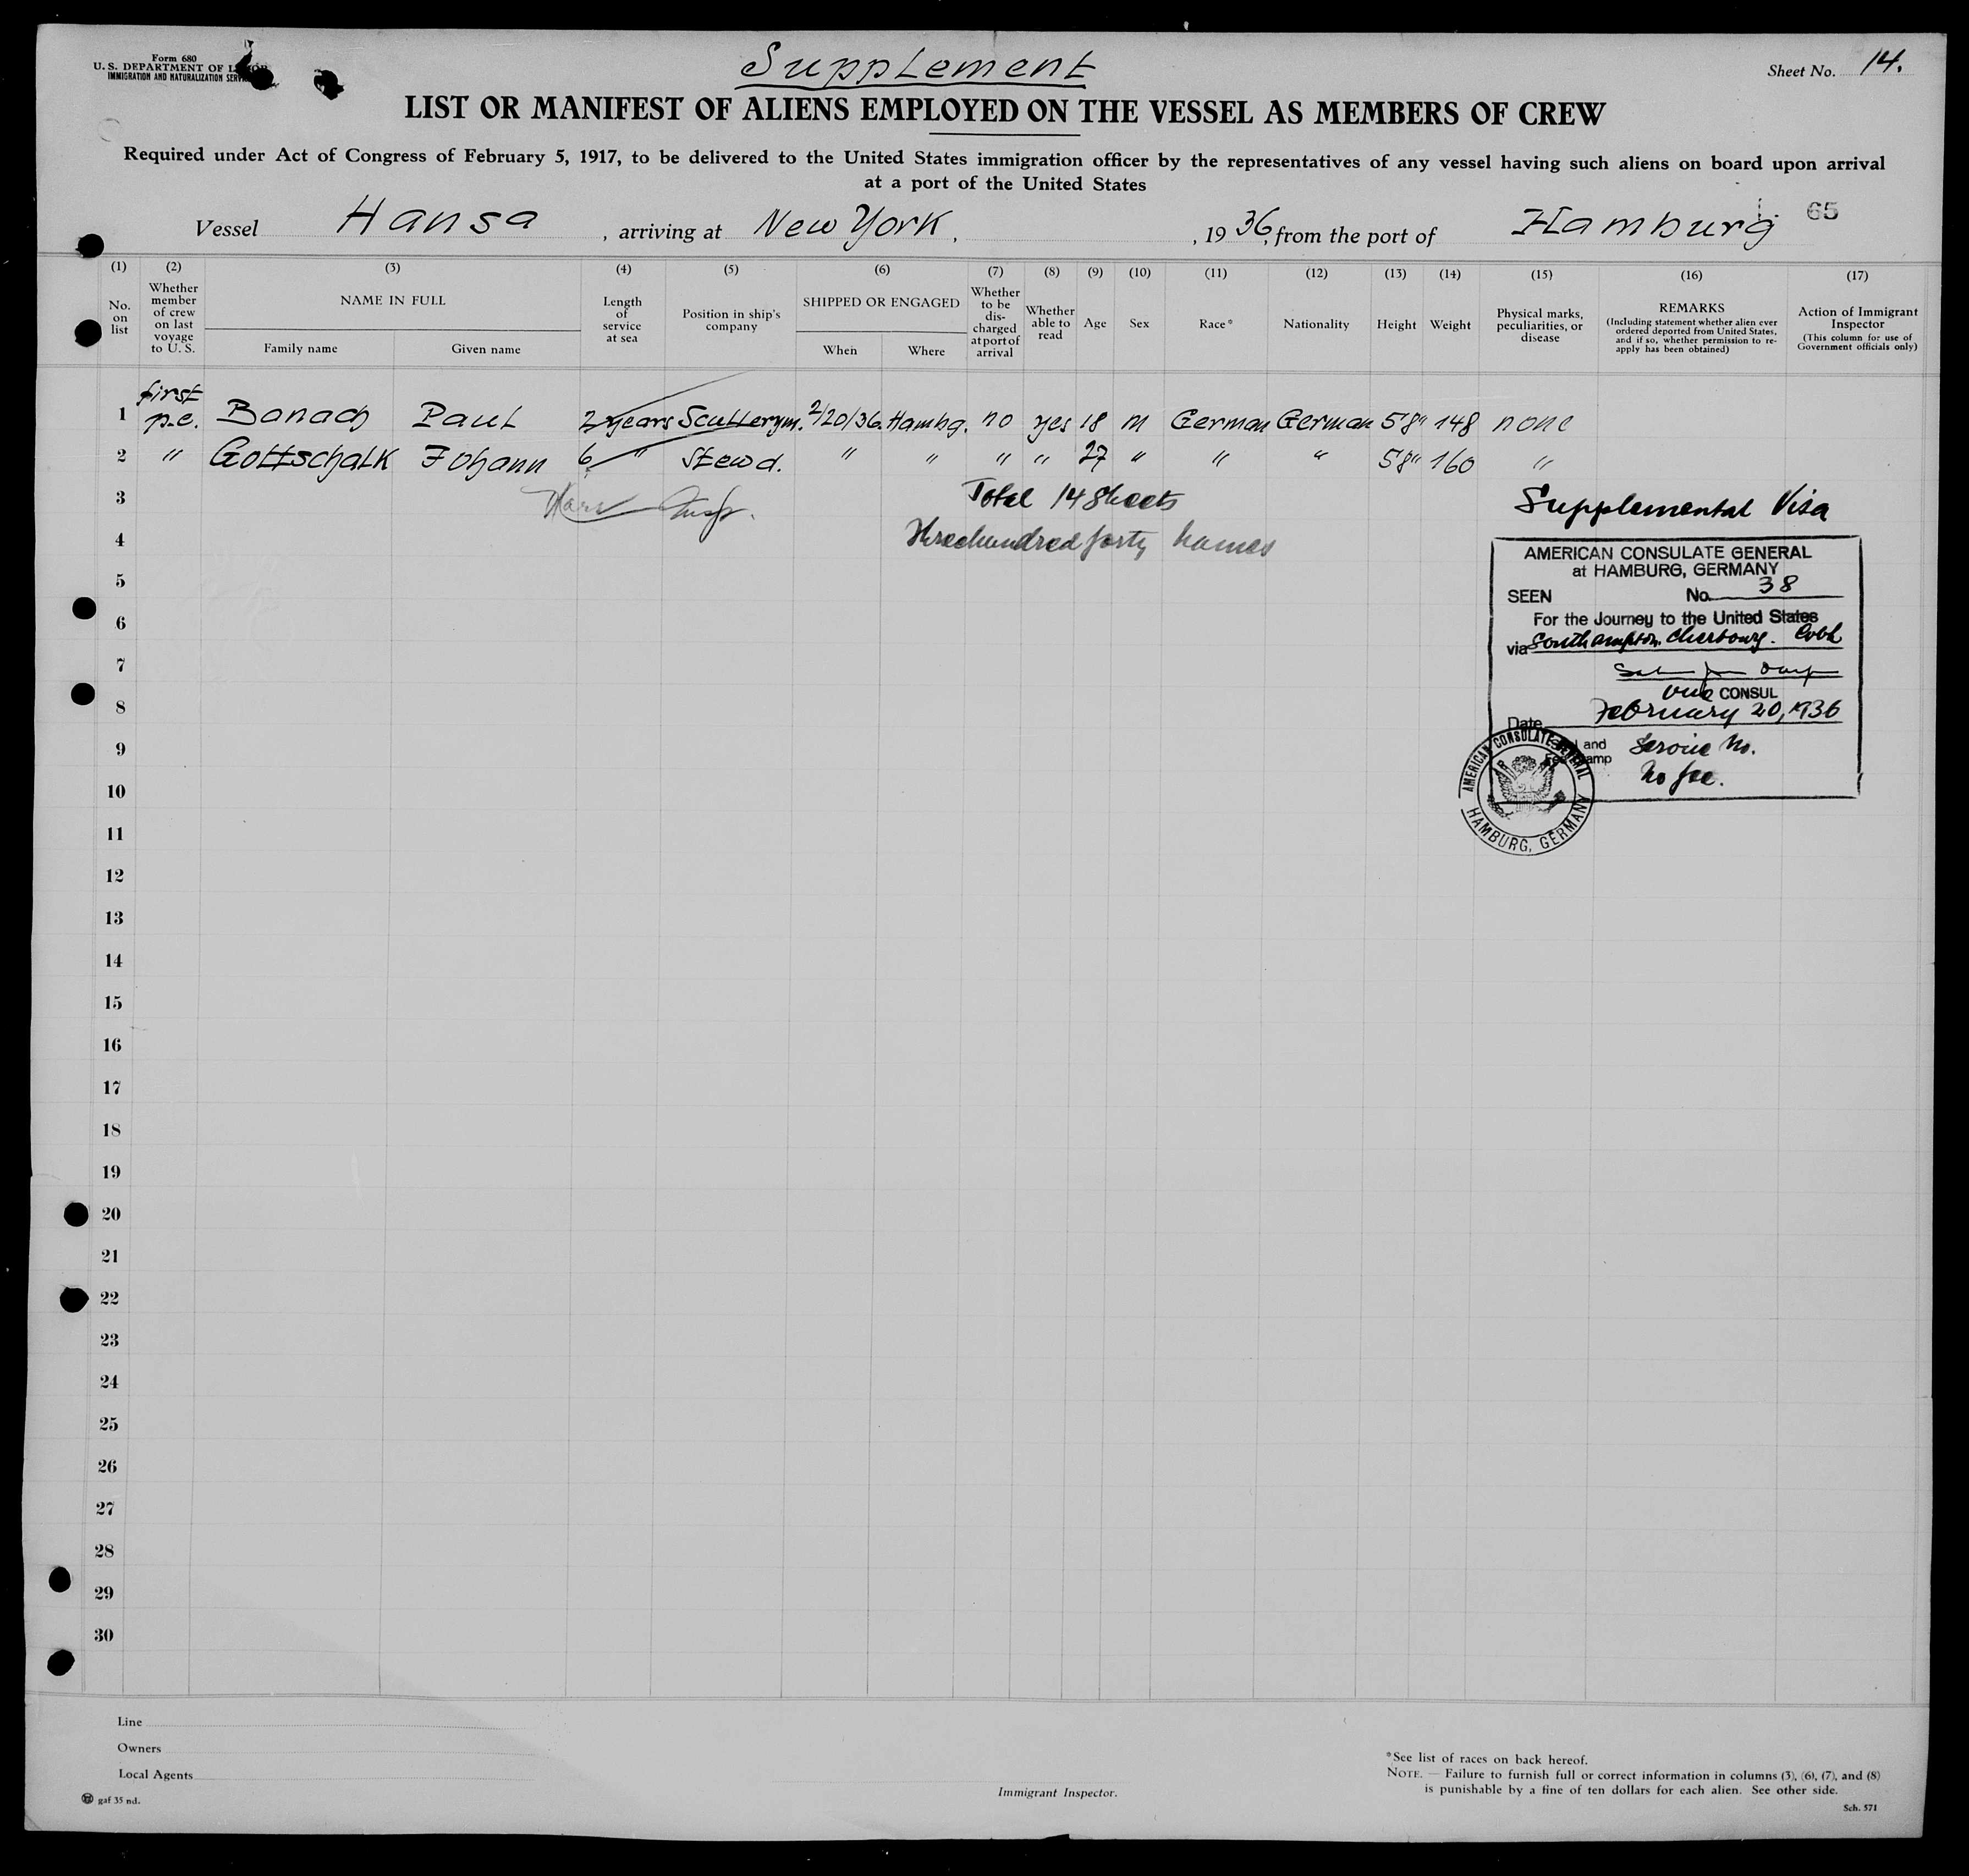 Form 680
U. S. DEPARTMENT OF LABOR
IMMIGRATION AND NATURALIZATION SERVICE
Supplement
Sheet No. 14.
LIST OR MANIFEST OF ALIENS EMPLOYED ON THE VESSEL AS MEMBERS OF CREW
Required under Act of Congress of February 5, 1917, to be delivered to the United States immigration officer by the representatives of any vessel having such aliens on board upon arrival
at a port of the United States
65
Vessel Hansa, arriving at New York, , 1936, from the port of Hamburg
(1) (2) (3) (4) (5) (6) (7) (8) (9) (10) (11) (12) (13) (14) (15) (16) (17)
No. on list
Whether member of crew on last voyage to U. S.
NAME IN FULL
Family name
Given name
Length of service at sea
Position in ship's company
SHIPPED OR ENGAGED
When
Where
Whether to be discharged at port of arrival
Whether able to read
Age
Sex
Race*
Nationality
Height
Weight
Physical marks, peculiarities, or disease
REMARKS
(Including statement whether alien ever ordered deported from United States, and if so, whether permission to reapply has been obtained)
Action of Immigrant Inspector
(This column for use of Government officials only)
first
1 p.c. Banach Paul 2 years Scullerym. 2/20/36 Hambg. no yes 18 m German German 5'8" 148 none
2 " Gottschalk Johann 6 " Stewd. " " " " 27 " " " 5'8" 160 "
3 Insp. Total 14 Sheets
4 Threehundred forty names
Supplemental Visa
AMERICAN CONSULATE GENERAL
at HAMBURG, GERMANY
SEEN No. 38
For the Journey to the United States
via Southampton. Cherbourg. Cobh
Vice CONSUL
Date February 20, 1936
Seal and
Fee Stamp
Service No.
No fee.
AMERICAN CONSULATE GENERAL
HAMBURG, GERMANY
5
6
7
8
9
10
11
12
13
14
15
16
17
18
19
20
21
22
23
24
25
26
27
28
29
30
Line
Owners
Local Agents
gaf 35 nd.
Immigrant Inspector.
*See list of races on back hereof.
NOTE. — Failure to furnish full or correct information in columns (3), (6), (7), and (8)
is punishable by a fine of ten dollars for each alien. See other side.
Sch. 571